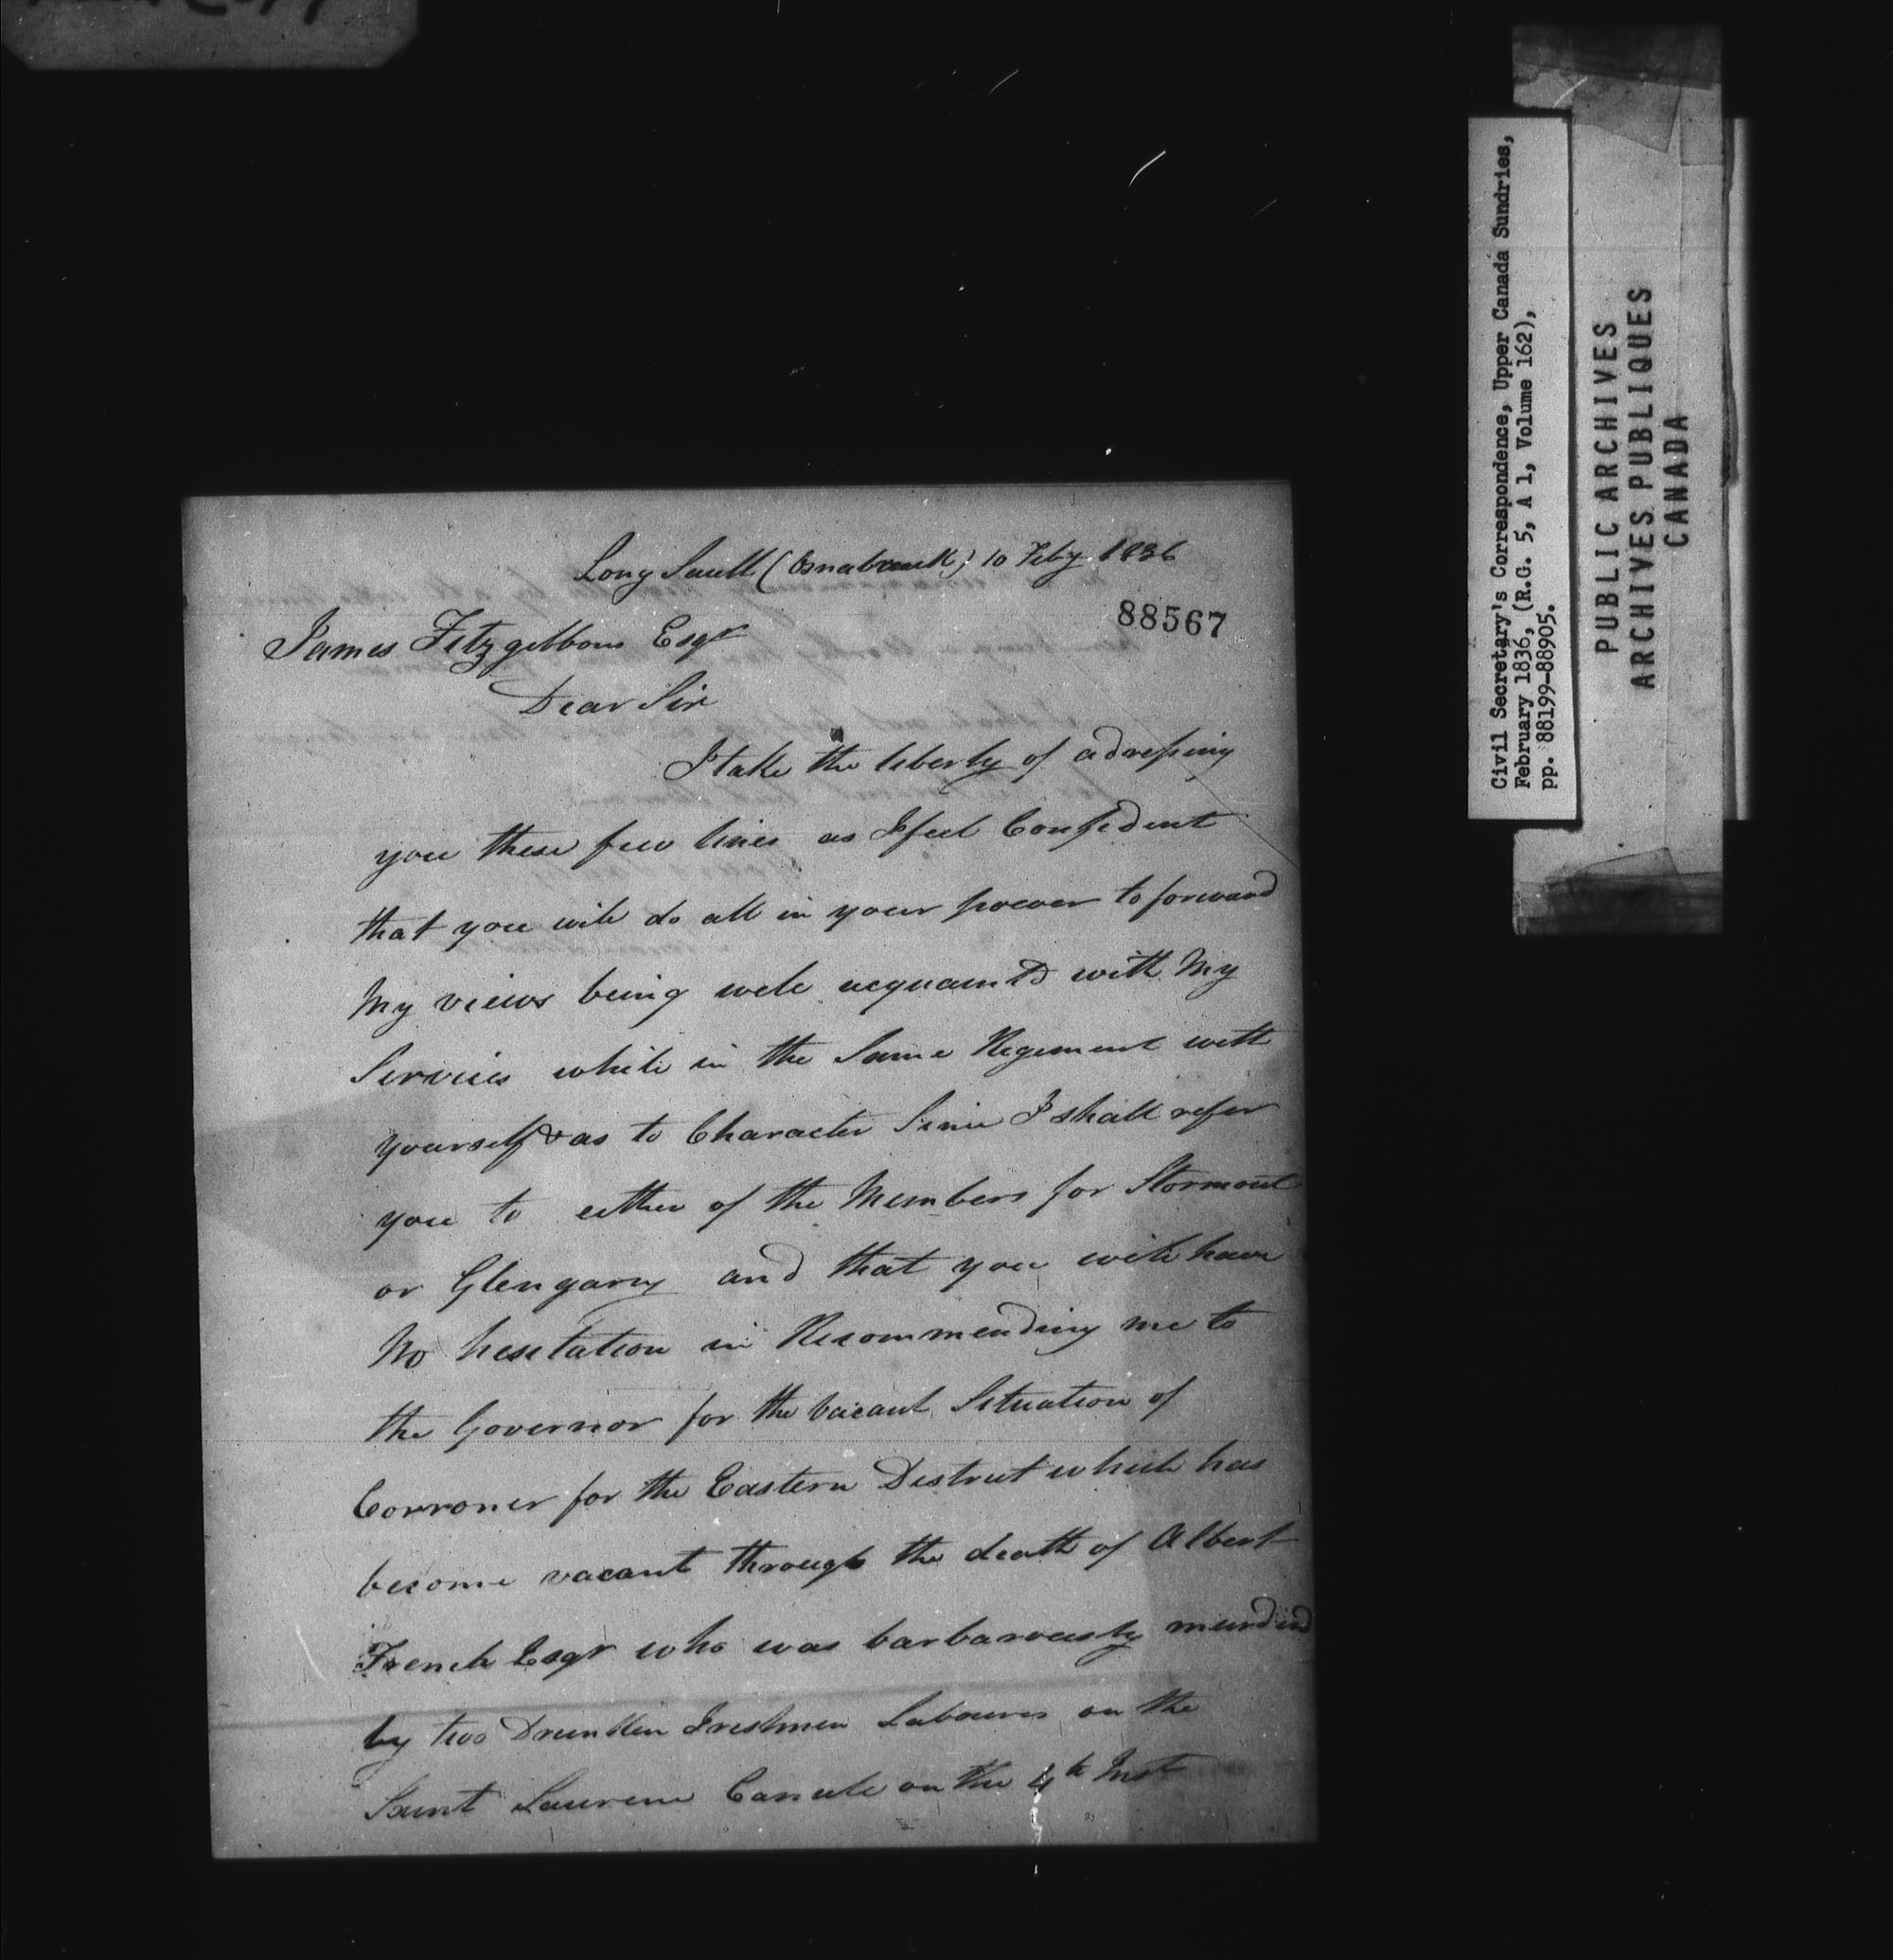 Long Sault (Osnabruck) 10 Feby. 1836
88567
James Fitzgibbons Esqr
Dear Sir
I take the liberty of adressing
you these few lines as I feel Confident
that you will do all in your power to forward
My views being well acquaintd with My
Services while in the Same Regiment with
yourself & as to Character Since I shall refer
you to either of the Members for Stormont
or Glengarry and that you will have
No hesitation in Recommending me to
the Governor for the Vacant Situation of
Corroner for the Eastern District which has
become vacant through the death of Albert
French Esqr who was barbarously murderd
by two Drunken Irishmen Labourers on the
Saint Laurence Canale on the 4th Inst
Civil Secretary's Correspondence, Upper Canada Sundries,
February 1836, (R.G. 5, A 1, Volume 162),
pp. 88199-88905.
PUBLIC ARCHIVES
ARCHIVES PUBLIQUES
CANADA